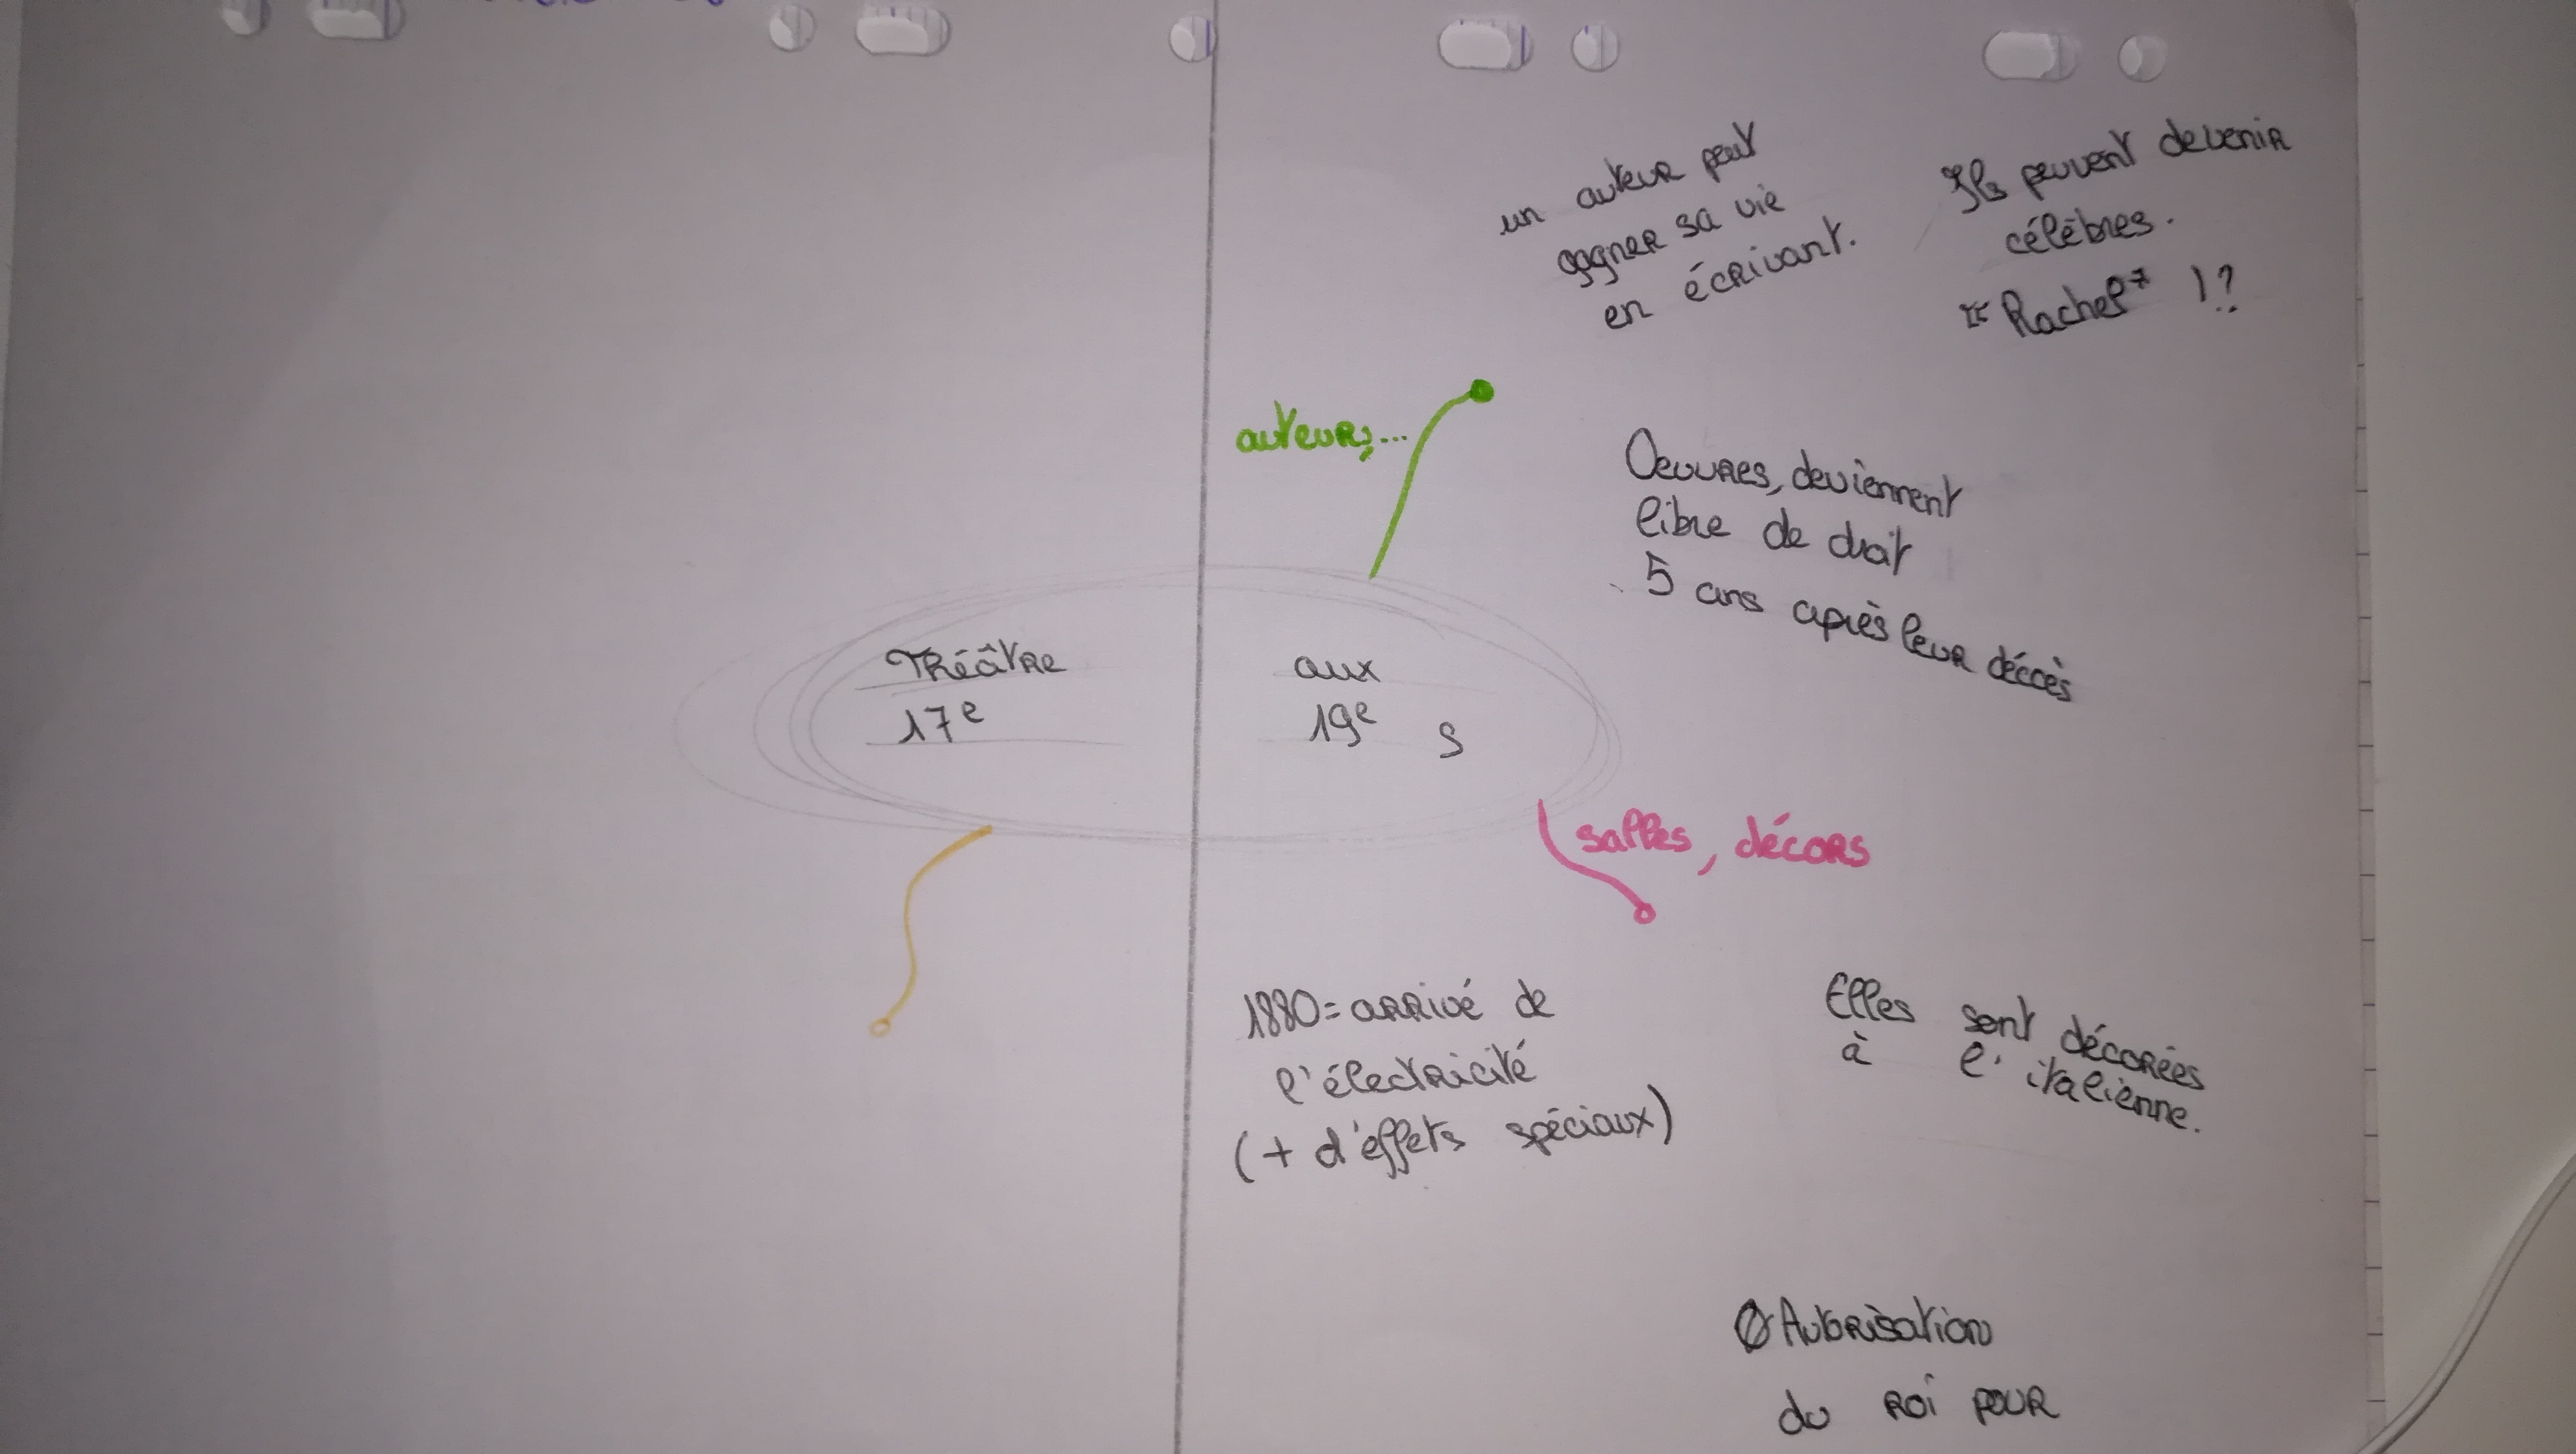 un auteur peut
gagner sa vie
en écrivant.
Ils peuvent devenir
célèbres.
"Rachel" !?
auteurs,...
Oeuvres, deviennent
libre de droit
5 ans après leur décès
Théâtre aux
17e 19e s
salles, décors
1880 = arrivé de
l'électricité
(+ d'effets spéciaux)
Elles sont décorées
à l'italienne.
Ø Autorisation
du roi pour